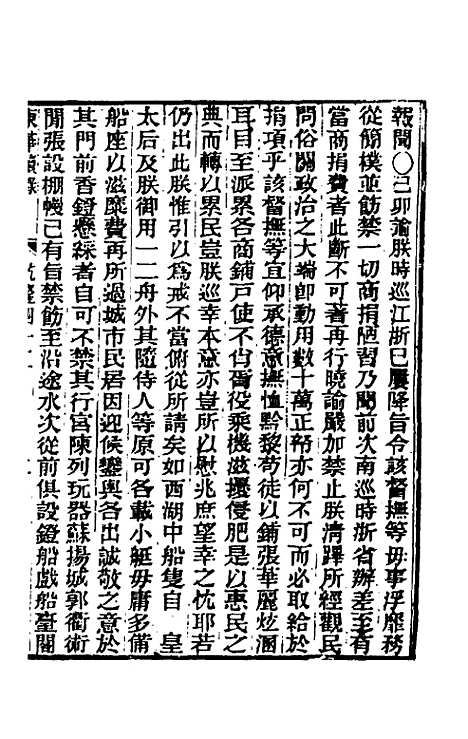 報聞○己卯諭朕時巡江浙已屢降旨令該督撫等毋事浮靡務
從簡樸並飭禁一切商捐陋習乃聞前次南巡時浙省辦差至有
當商捐費者此斷不可著再行曉諭嚴加禁止朕清蹕所經觀民
問俗關政治之大端卽動用數十萬正帑亦何不可而必取給於
捐項乎該督撫等宜仰承德意撫恤黔黎苟徒以鋪張華麗炫溷
耳目至派累各商鋪戶使不肖胥役乘機滋擾侵肥是以惠民之
典而轉以累民豈朕巡幸本意亦豈所以慰兆庶望幸之忱耶若
仍出此朕惟引以為戒不當俯從所請矣如西湖中船隻自　皇
太后及朕御用一二舟外其隨侍人等原可各載小艇毋庸多備
船座以滋糜費再所過城市民居因迎候鑾輿各出誠敬之意於
其門前香鐙懸綵者自可不禁其行宮陳列玩器蘇揚城郭衢術
閒張設棚幔已有旨禁飭至沿途水次從前俱設鐙船戲船臺閣
東華續錄　乾隆四十二